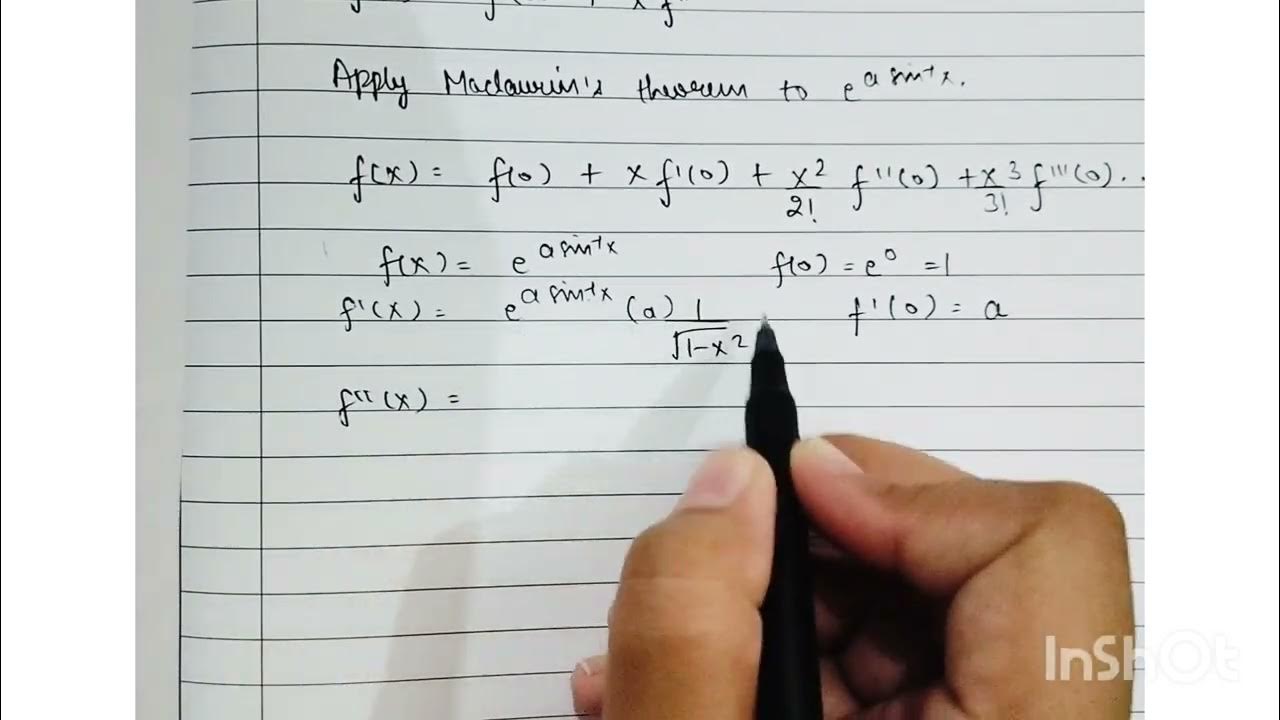 Apply Maclaurin's theorem to e^(a sin⁻¹x).
f(x) = f(0) + x f'(0) + x²/2! f''(0) + x³/3! f'''(0)..
f(x) = e^(a sin⁻¹x) f(0) = e⁰ = 1
f'(x) = e^(a sin⁻¹x) (a) 1/√(1-x²) f'(0) = a
f''(x) =
InShOt